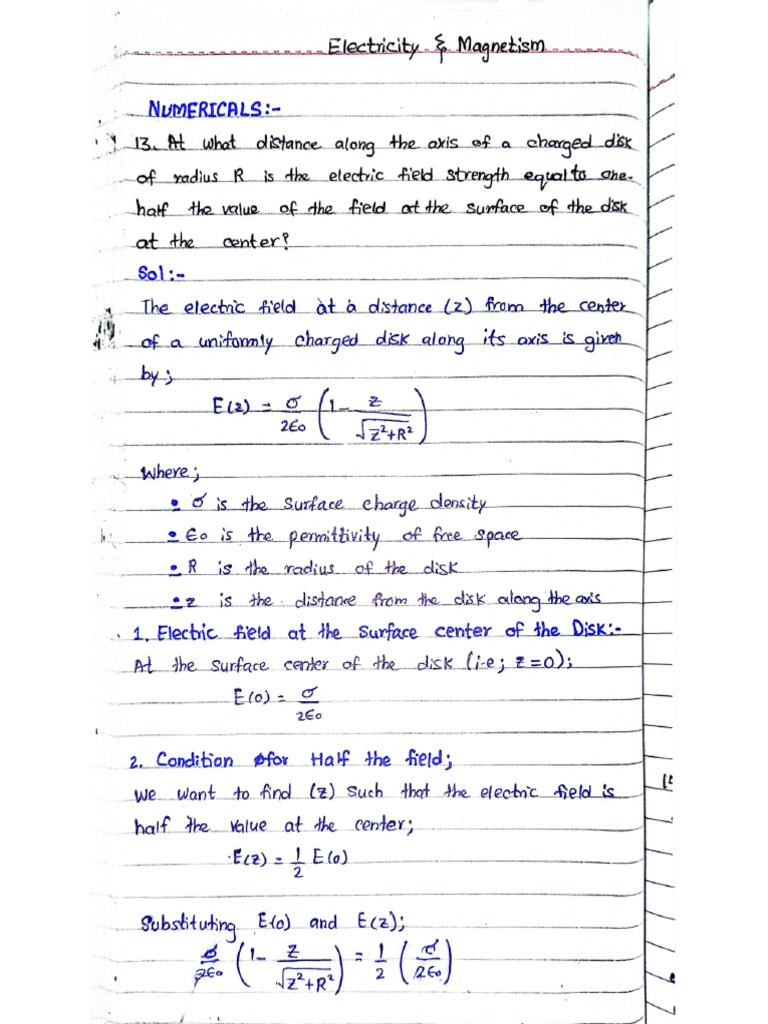 Electricity & Magnetism
NUMERICALS:-
13. At what distance along the axis of a charged disk
of radius R is the electric field strength equal to one-
half the value of the field at the surface of the disk
at the center?
Sol:-
The electric field at a distance (z) from the center
of a uniformly charged disk along its axis is given
by;
E(z) = σ/2ϵ0 (1 - z/√z²+R²)
Where;
• σ is the surface charge density
• ϵ0 is the permittivity of free space
• R is the radius of the disk
• z is the distance from the disk along the axis
1. Electric field at the surface center of the Disk:-
At the surface center of the disk (i.e; z=0);
E(0) = σ/2ϵ0
2. Condition for Half the field;
We want to find (z) such that the electric field is
half the value at the center;
E(z) = 1/2 E(0)
Substituting E(0) and E(z);
σ/2ϵ0 (1 - z/√z²+R²) = 1/2 (σ/2ϵ0)